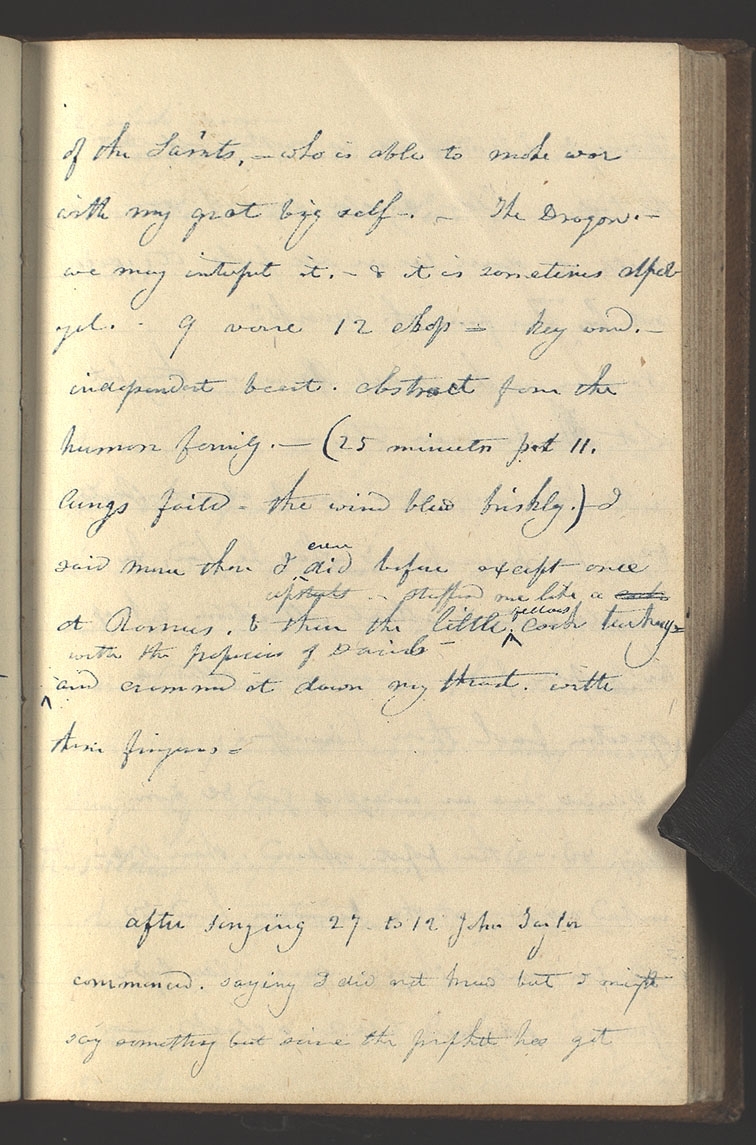 of the Saints, - who is able to make war
with my great big self -. - The Dragon. -
we may interpret it. - & it is sometimes Apol-
yel. - 9 verse 12 chap = key word. -
independent beast. abstract from the
human family. - (25 minutes past 11.
lungs faild - the wind blew briskly.) - I
said more than I ever did before except once
at Ramus. & then the little fellows
upstarts - stuffed me like a cock turkey =
with the prophecies of Daniel -
and crammd it down my throat. with
their fingers =
after singing 27 to 12 John Taylor
commenced. saying I did not know but I might
say something but since the prophet has got